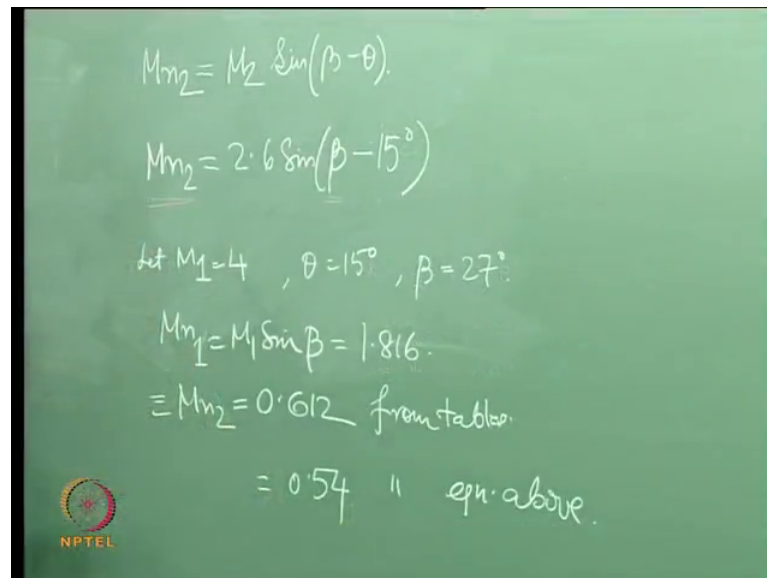 Mn₂ = M₂ Sin(β-θ).
Mn₂ = 2.6 Sin(β-15°)
Let M₁=4 , θ=15° , β=27°.
Mn₁=M₁ Sin β = 1.816.
≡ Mn₂ = 0.612 from tables.
= 0.54 " eqn. above.
NPTEL